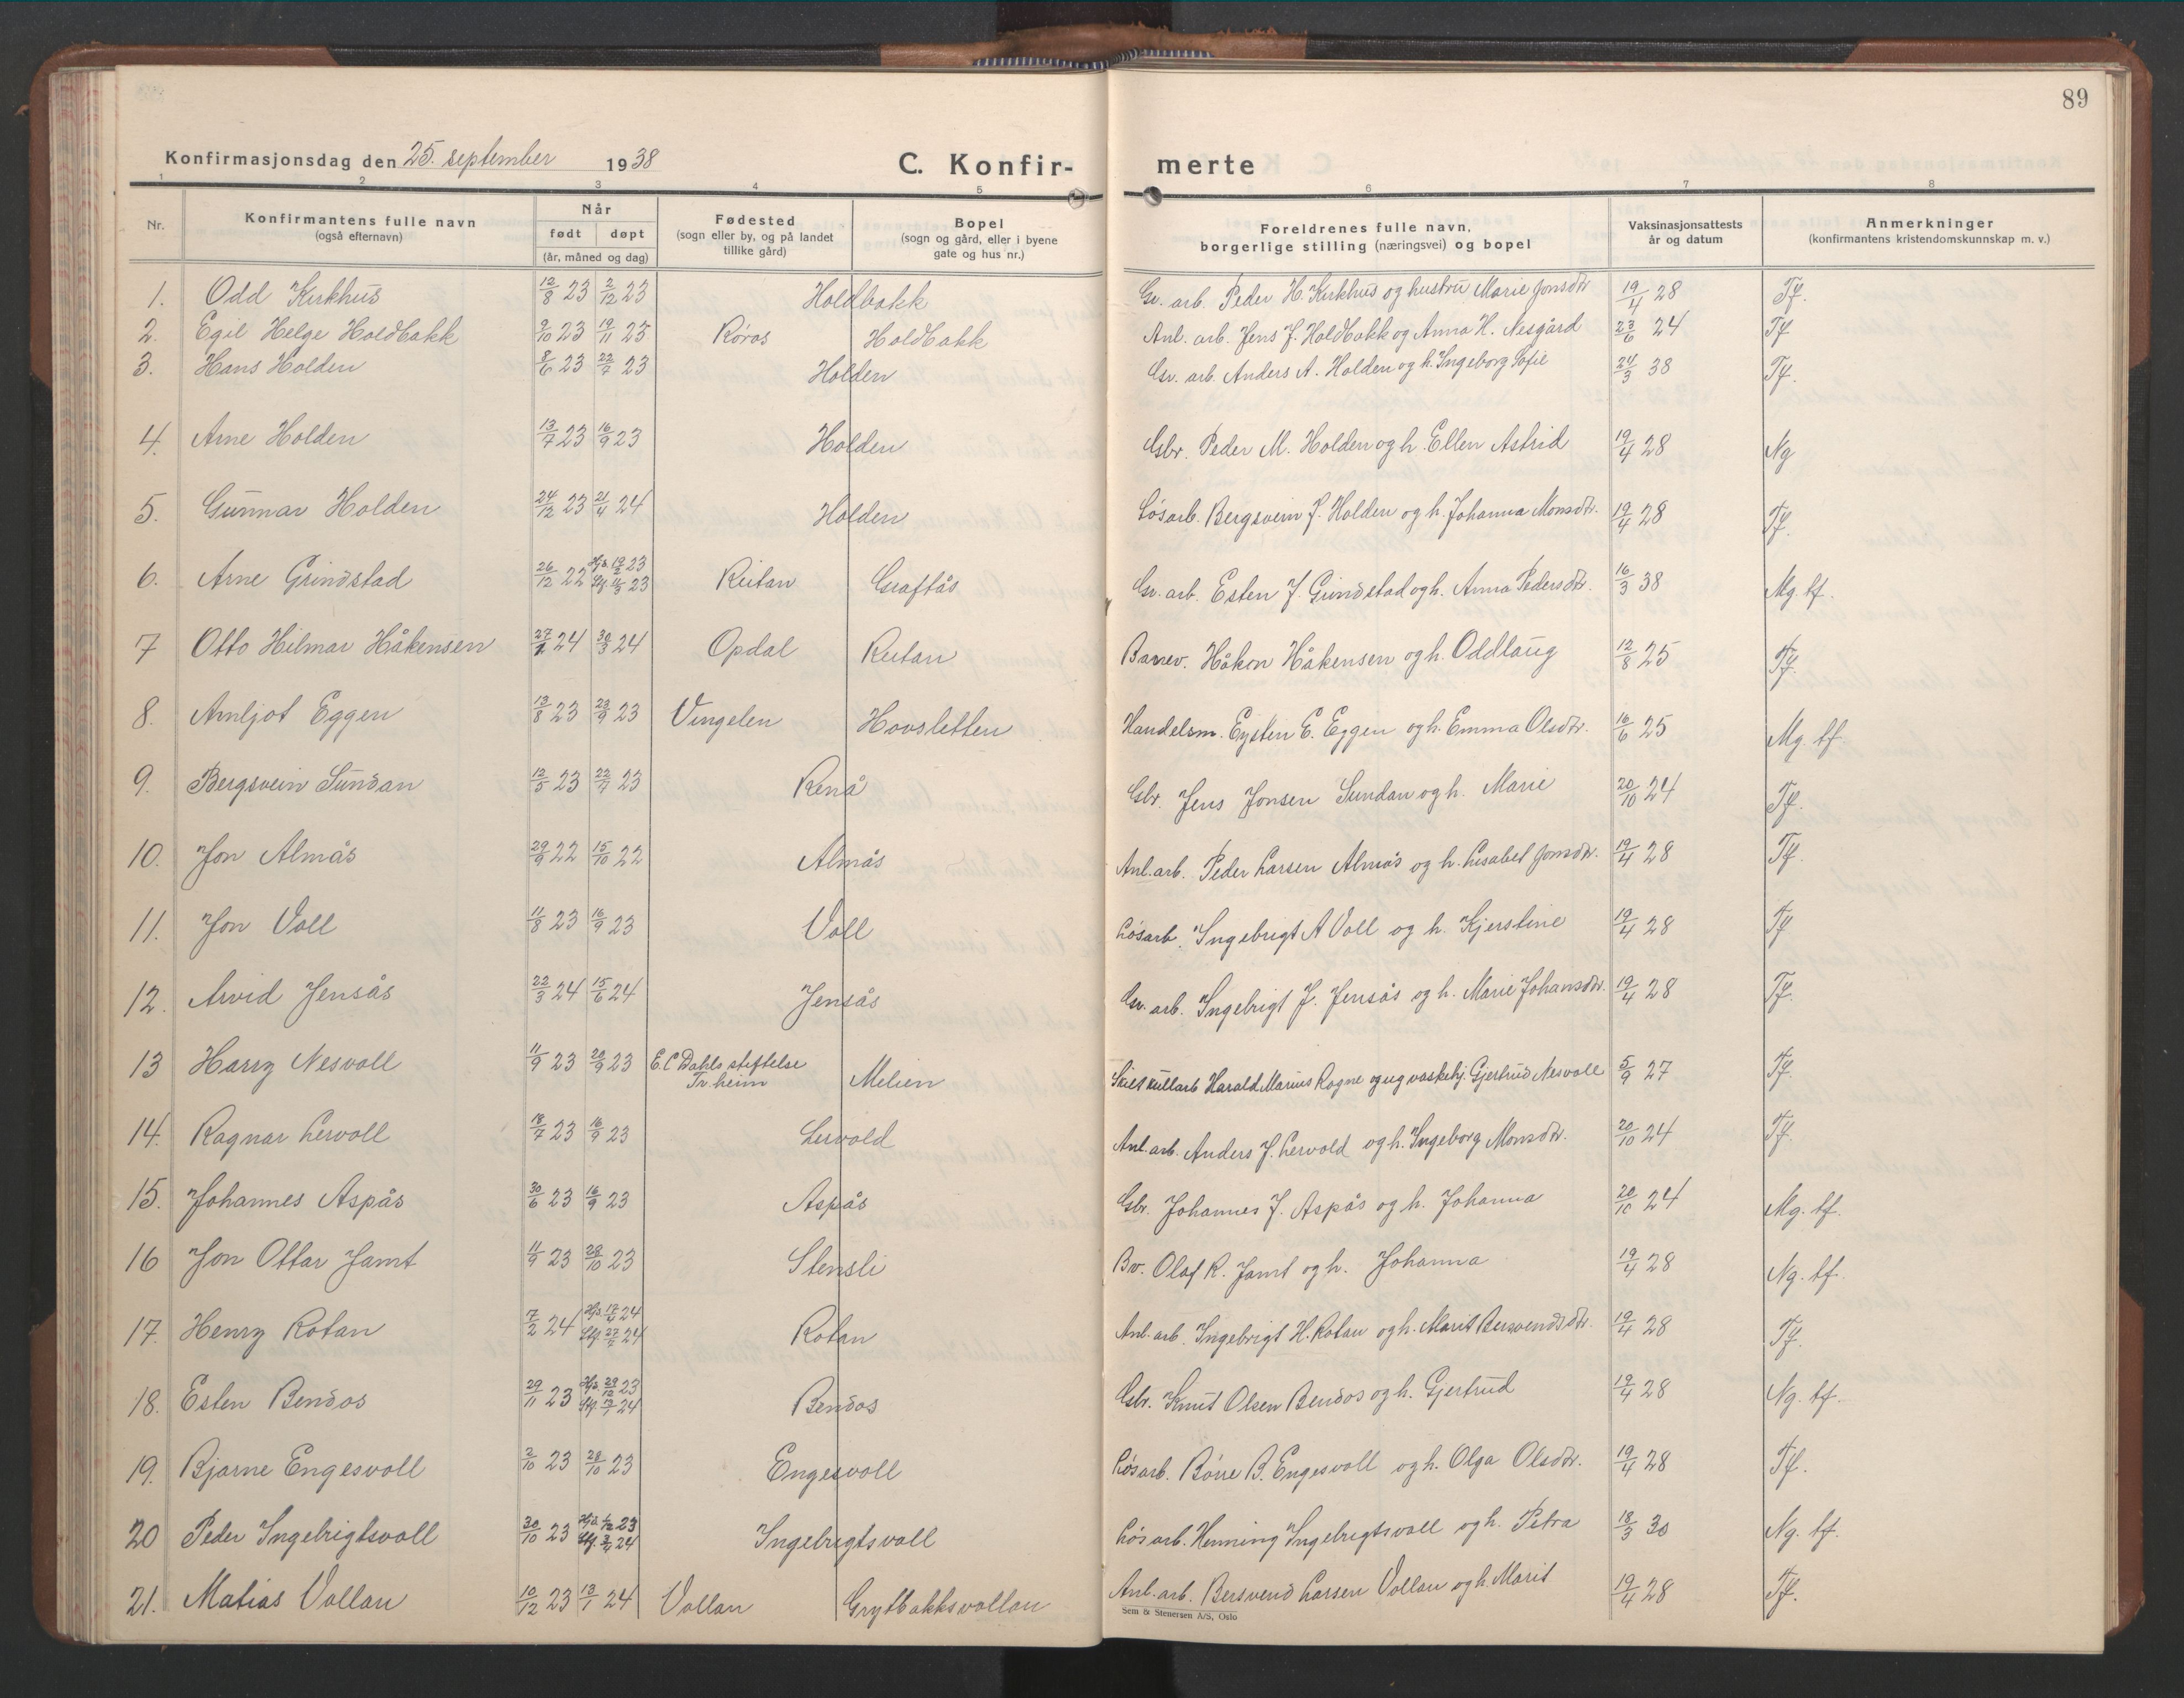 89
Konfirmasjonsdag den 25. september 1938
C. Konfir-merte
1 2 3 4 5 6 7 8
Nr.
Konfirmantens fulle navn
(også efternavn)
Når
født døpt
(år, måned og dag)
Fødested
(sogn eller by, og på landet
tillike gård)
Bopel
(sogn og gård, eller i byene
gate og hus nr.)
Foreldrenes fulle navn,
borgerlige stilling (næringsvei) og bopel
Vaksinasjonsattests
år og datum
Anmerkninger
(konfirmantens kristendomskunnskap m. v.)
1. Odd Kirkhus 12/8 23 2/12 23 Holdbakk Gr. arb. Peder H. Kirkhus og hustru Marie Jonsdtr 19/4 28 Tf.
2. Egil Helge Holdbakk 9/10 23 19/11 23 Røros Holdbakk Anl. arb. Jens J. Holdbakk og Anna H. Nesgård 23/6 24 Tf
3. Hans Holden 8/6 23 22/7 23 Holden Gr. arb. Anders A. Holden og h. Ingeborg Sofie 24/3 38 Tf.
4. Arne Holden 13/7 23 16/9 23 Holden Gbr. Peder M. Holden og h. Ellen Astrid 19/4 28 Ng
5. Gunnar Holden 24/12 23 21/4 24 Holden Løsarb. Bergsvein J. Holden og h. Johanna Monsdtr. 19/4 28 Tf.
6. Arne Grindstad 26/12 22 Hjd. 23 Stf. 23 Reitan Graftås Gr. arb. Esten J. Grindstad og h. Anna Pedersdtr. 16/3 38 Mg. tf.
7 Otto Hilmar Håkensen 27/1 24 30/3 24 Opdal Reitan Banev. Håkon Håkensen og h. Oddlaug 12/8 25 Tf.
8. Arnljot Eggen 13/8 23 23/9 23 Vingelen Hovsletten Handelsm. Eysten E. Eggen og h. Emma Olsdtr. 16/6 25 Mg. tf.
9. Bergsvein Sundan 12/5 23 22/7 23 Renå Gbr. Jens Jonsen Sundan og h. Marie 20/10 24 Tf.
10. Jon Almås 29/9 22 15/10 22 Almås Anl. arb. Peder Larsen Almås og h. Lisabet Jonsdtr. 19/4 28 Tf.
11. Jon Voll 11/8 23 16/9 23 Voll Løsarb. Ingebrigt A Voll og h. Kjerstine 19/4 28 Tf
12. Arvid Jensås 22/3 24 15/6 24 Jensås Gr. arb. Ingebrigt J. Jensås og h. Marie Johansdtr. 19/4 28 Tf.
13 Harry Nesvoll 11/9 23 20/9 23 E. C Dahls stiftelse
Tr.heim Melien Harald Marius Rogne og ug vaskehj. Gjertrud Nesvoll 5/9 27 Tf.
14. Ragnar Lervoll 18/7 23 16/9 23 Lervold Anl. arb. Anders J. Lervold og h. Ingeborg Monsdtr. 20/10 24 Tf.
15. Johannes Aspås 30/6 23 16/9 23 Aspås Gbr. Johannes J. Aspås og h. Johanna 20/10 24 Mg. tf.
16 Jon Ottar Jamt 11/9 23 28/10 23 Stensli Bv. Olaf R. Jamt og h. Johanna 19/4 28 Ng. tf.
17. Henry Rotan 7/2 24 Hjd. 24 Stf. 24 Rotan Anl. arb. Ingebrigt H. Rotan og h. Marit Bersvendsdtr. 19/4 28 Tf.
18. Esten Bendos 29/11 23 Hjd. 29/12 23 Stf. 24 Bendos Gbr. Knut Olsen Bendos og h. Gjertrud 19/4 28 Ng. tf.
19. Bjarne Engesvoll 2/10 23 28/10 23 Engesvoll Løsarb. Børre B. Engesvoll og h. Olga Olsdtr. 19/4 28 Tf.
20 Peder Ingebrigtsvoll 30/10 23 Hjd. 23 Stf. 24 Ingebrigtsvoll Løsarb. Henning Ingebrigtsvoll og h. Petra 18/3 30 Ng. tf.
21. Matias Vollan 10/12 23 13/1 24 Vollan Grytbakksvollan Anl. arb. Bersvend Larsen Vollan og h. Marit 19/4 28 Tf.
Sem & Stenersen A/S, Oslo